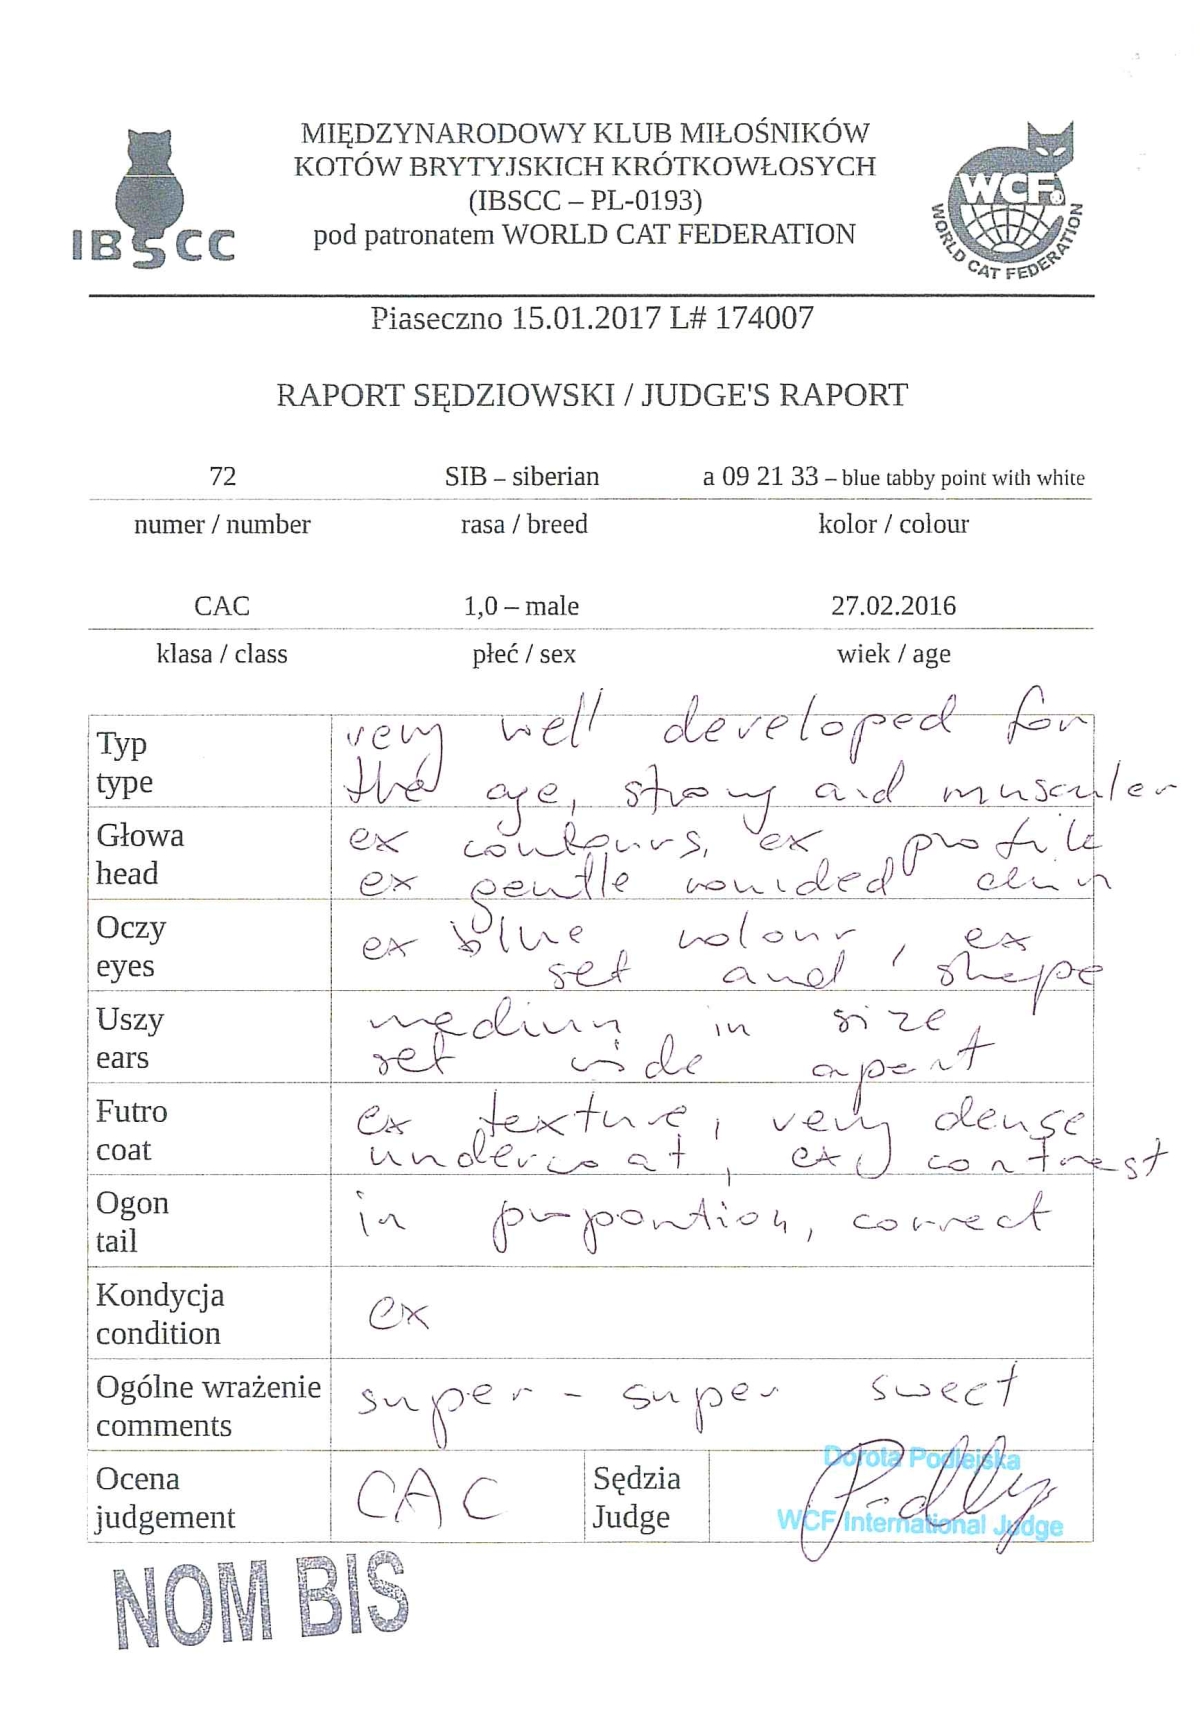 MIĘDZYNARODOWY KLUB MIŁOŚNIKÓW
KOTÓW BRYTYJSKICH KRÓTKOWŁOSYCH
(IBSCC – PL-0193)
pod patronatem WORLD CAT FEDERATION
IBSCC
WCF®
WORLD CAT FEDERATION
Piaseczno 15.01.2017 L# 174007
RAPORT SĘDZIOWSKI / JUDGE'S RAPORT
72 SIB – siberian a 09 21 33 – blue tabby point with white
numer / number rasa / breed kolor / colour
CAC 1,0 – male 27.02.2016
klasa / class płeć / sex wiek / age
Typ very well developed for
type the age, strong and muscular
Głowa ex contours, ex profile
head ex gentle rounded chin
Oczy ex blue colour, ex
eyes set and shape
Uszy medium in size,
ears set wide apart
Futro ex texture, very dense
coat undercoat, ex contrast
Ogon in proportion, correct
tail
Kondycja ex
condition
Ogólne wrażenie super - super sweet
comments
Ocena CAC Sędzia Dorota Podlejska
judgement Judge WCF International Judge
NOM BIS